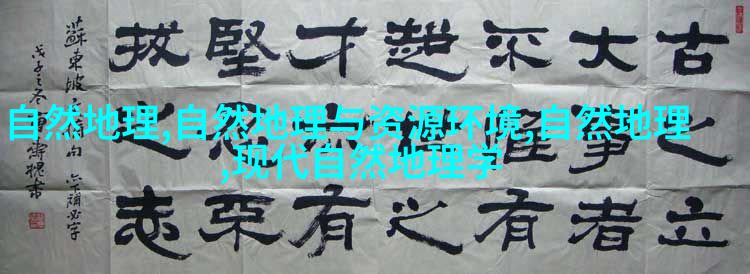 自然地理,自然地理与资源环境,自然地理
,现代自然地理学
古之立
大事者
不惟有
超世之
才亦有
堅忍不
拔之志
蘇東坡名句 漏必字
戊子之冬 書